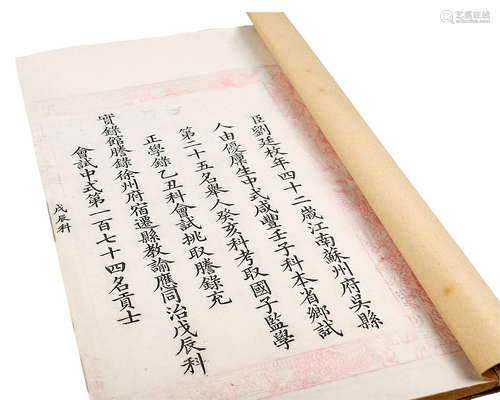 臣劉廷枚年四十二歲江南蘇州府吳縣
人由優廩生中式咸豐壬子科本省鄉試
第二十五名舉人癸亥科考取國子監學
正學錄乙丑科會試挑取謄錄充
實錄館謄錄徐州府宿遷縣教諭應同治戊辰科
會試中式第一百七十四名貢士
戊辰科